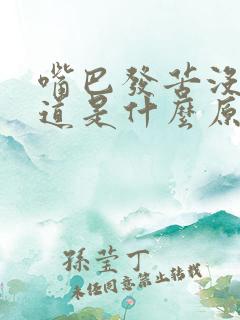 嘴巴發苦沒
道是什麼原
孫莹丁
未经同意禁止转载